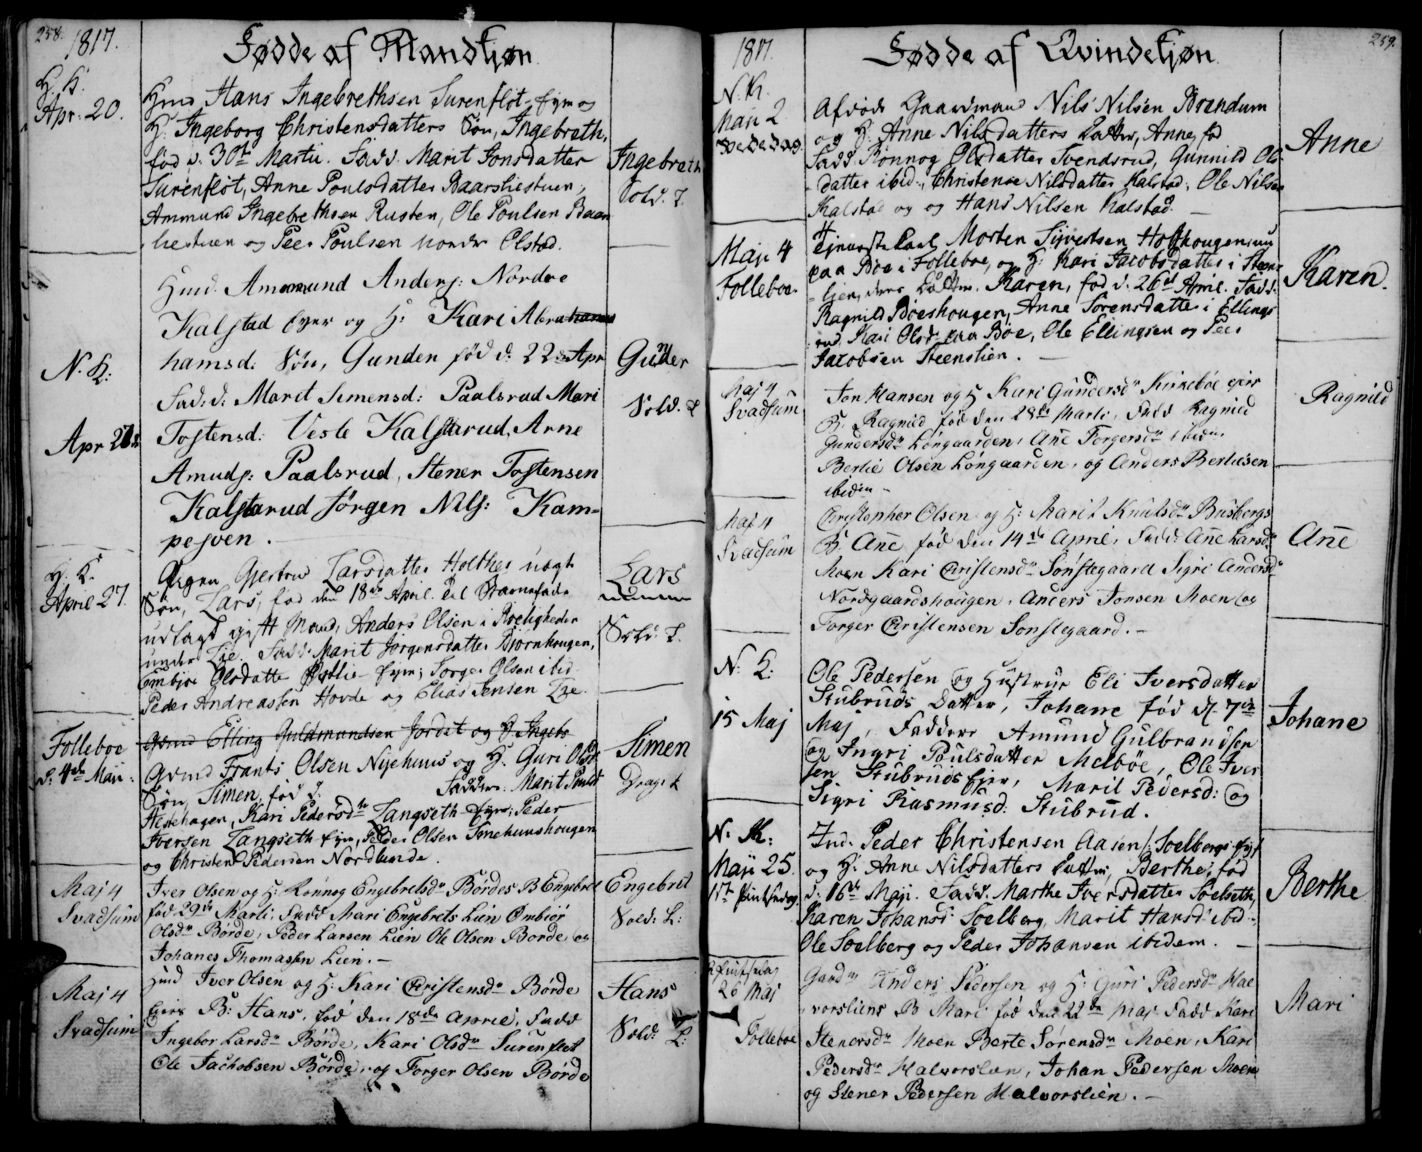 258.
1817.
Fødde af Mandkjøn
H. K.
Apr. 20.
Huusm. Hans Ingebrethsen Surenfløt Ejer og
H: Ingeborg Christensdatters Søn, Ingebreth,
fød d. 30te Martii. Fadd. Marit Jonsdatter
Surenfløt, Anne Poulsdatter Baarsliestuen,
Ammund Ingebrethsen Rusten, Ole Poulsen Baar-
sliestuen og Peer Poulsen nordr Olstad.
Ingebreth
Sold. L.
N. K:
Apr 27
Huusm. Ammund Anders: Nordre
Kalstad Ejer og H: Kari Abra
hamsd: Søn, Gunder fød d: 22 Apr
Fad: d: Marit Simensd: Paalsrud Mari
Tostensd: Vesle Kalstarud, Arne
Amuds: Paalsrud, Stener Tostensen
Kalstarud Jørgen Nils: Kam-
pesven.
Gunder
Sold. L
H. K.
April 27.
Pigen Gjertrud Larsdatter Holthes uægte
Søn, Lars, fød den 18de April. Til Barnefader
udlagt gift Mand, Anders Olsen i Roligheden
under Lie. Fadd. Marit Jørgensdatter Bjørnhougen,
Embjør Olsdatter Østlie Ejer, Torger Olsen ibid
Peder Andreassen Hovde og Elias Jensen Lie.
Lars
Sold: L.
Folleboe
d: 4de Maji
Gvmd Elling Guldmundsen Jordet og H Ingeb
Gvmd Frants Olsen Nijehuus og H. Guri Olsd
Søn, Simen, fød d. Faddere: Marit Pouls
Heslehagen, Kari Pedersdtr Langseth Ejer, Peder
Iversen Langseth Ejer, Peder Olsen Tonehuushougen
og Christen Pedersen Nordlunde.
Simen
Drag: L
Maj 4
Svadsum
Iver Olsen og H: Rønnog Engebretsdr Bördes B Engebret
fød 29de Marti: Fadd Mari Engebrets Lien Ombiør
Olsdr Börde, Peder Larsen Lien Ole Olsen Borde og
Johanes Thomassen Lien.—
Engebret
Sold: L:
Maj 4
Svadsum
Huusm Iver Olsen og H: Kari Christensdr Börde
Ejers B: Hans, fød den 18de April, Fadd
Ingebor Larsdr Börde, Kari Olsdr Surenfløt
Ole Jachobsen Börde, og Torger Olsen Börde
Hans
Sold: L:
1817.
Fødde af Qvindekjøn
259.
N. K.
Maji 2
Bededag
Afdøde Gaardmand Nils Nilsen Brandum
og H: Anne Nilsdatters Datter, Anne, fød
Fadd. Rønnog Olsdatter Svendsrud, Gunnild Ols-
datter ibid., Christense Nilsdatter Kalstad, Ole Nilsen
Kalstad og og Hans Nilsen Kalstad.—
Anne
Maji 4
Folleboe.
Morten Sijvertsen Holthougen nu
paa Bøe i Folleboe, og H: Kari Jacobsdatter i Steens-
lien, deres Datter, Karen, fød d. 26de April. Fadd.
Ragnild Bøeshougen, Anne Sørensdatter i Ellings
rud, Kari Olsd: paa Bøe, Ole Ellingsen og Peer
Jacobsen Steenslien.—
Karen.
Maj 4
Svadsum
Jon Hansen og H Kari Gundersdr Kirkebøe ejers
B: Ragnild fød den 28de Marti, Fadd Ragnild
Gundersdr Löngaarden, Ane Torgersdr ibidm
Bertie Olsen Löngaarden, og Anders Bertiesen
ibidm—
Ragnild
Maj 4
Svadsum
Christopher Olsen og H: Marit Knutsdr Busbergs
B: Ane fød den 14de April, Fadd Ane Larsdr
Moen Kari Christensdr Sønstegaard Sigri Andersdr
Nordgaardshougen, Anders Jonsen Moen og
Torger Christensen Sonstegaard.—
Ane
N: K:
15 Maj
Ole Pedersen og Hustrue Eli Iversdatter
Stubruds Datter, Johane fød d. 7de
Maj, Faddere Amund Gulbrandsen
og Ingri Poulsdatter Melbøe, Ole Iver
sen Stubruds Ejer, Marit Pedersd: og
Sigri Rasmusd: Stubrud.
Johane
N. K:
Maji 25
1st Pintsedag
Ind. Peder Christensen Aasen /: Soelbergs Ejer
og H: Anne Nilsdatters Datter, Berthe, fød
d: 16de Maji. Fadd: Marthe Iversdatter Soelseth,
Karen Johansd Soelberg, Marit Hansd ibid.
Ole Soelberg og Peder Johansen ibidem.—
Berthe
2 Pintsedag
26 Maj
Folleboe
Gaardm Anders Pedersen og H: Guri Pedersdr Hal
vorsliens B Mari fød den 22de Maj Fadd Kari
Stenersdr Moen Berte Sörensdr Moen, Kari
Pedersdr Halvorslien, Johan Pedersen Moen
og Stener Pedersen Halvorslien.—
Mari